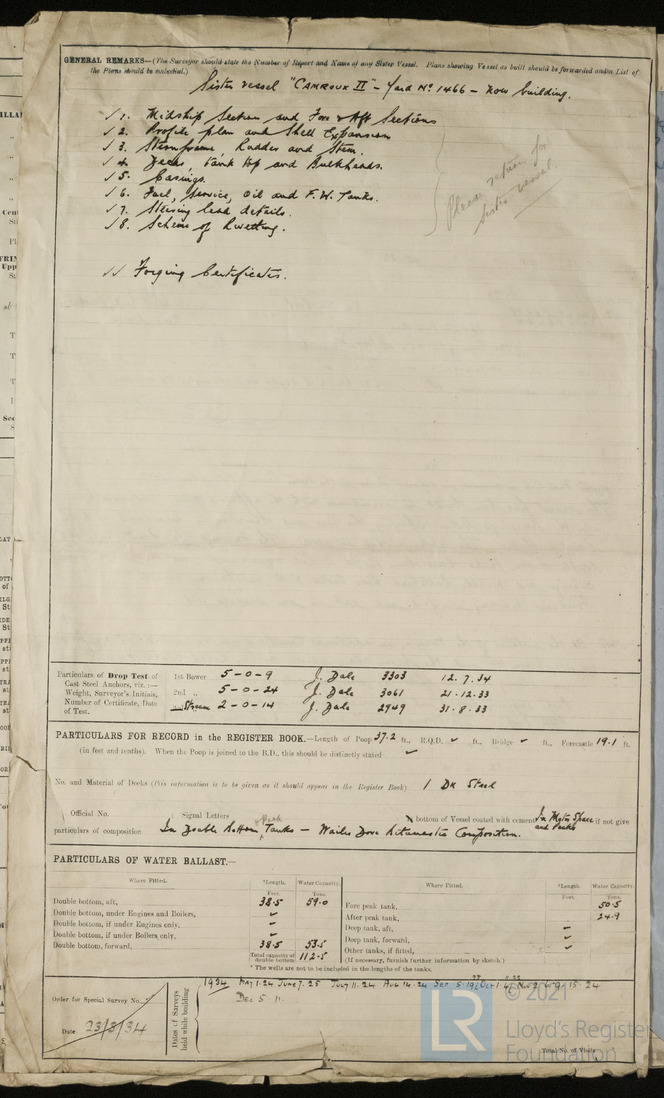 GENERAL REMARKS—(The Surveyor should state the Number of Report and Name of any Sister Vessel. Plans showing Vessel as built should be forwarded and a List of
the Plans should be embodied.)
Sister vessel "CAMROUX II" - Yard No 1466 - now building.
/ 1. Midship Section and Fore & Aft Sections
/ 2. Profile plan and Shell Expansion
/ 3. Sternframe, Rudder and Stem.
/ 4. Decks, Tank top and Bulkheads.
/ 5. Casings.
/ 6. Fuel, Service, Oil and F.W. Tanks.
/ 7. Steering lead details.
/ 8. Scheme of Rivetting.
Please return for
sister vessel.
11 Forging Certificates.
Particulars of Drop Test of 1st Bower 5-0-9 J. Dale 3303 12.7.34
Cast Steel Anchors, viz.:—
Weight, Surveyor's Initials, 2nd „ 5-0-24 J. Dale 3061 21.12.33
Number of Certificate, Date Stream 2-0-14 J. Dale 2949 31.8.33
of Test.
PARTICULARS FOR RECORD in the REGISTER BOOK.—Length of Poop 37.2 ft., R.Q.D. ft., Bridge ft., Forecastle 19.1 ft.
(in feet and tenths). When the Poop is joined to the B.D., this should be distinctly stated
No. and Material of Decks (this information is to be given as it should appear in the Register Book) 1 Dk Steel
Official No. Signal Letters bottom of Vessel coated with cement In Motor Space and Peaks if not give
particulars of composition In Double Bottom Tanks - Wailes Dove Bitumastic Composition.
PARTICULARS OF WATER BALLAST.—
Where Fitted. *Length. Water Capacity. Where Fitted. *Length. Water Capacity.
Feet. Tons. Feet. Tons.
Double bottom, aft, 38.5 59.0 Fore peak tank, 50.5
Double bottom, under Engines and Boilers, After peak tank, 24.9
Double bottom, if under Engines only, Deep tank, aft,
Double bottom, if under Boilers only, Deep tank, forward,
Double bottom, forward, 38.5 53.5 Other tanks, if fitted,
Total capacity of double bottom 112.5 (If necessary, furnish further information by sketch.)
* The wells are not to be included in the lengths of the tanks.
Order for Special Survey No.
Date 23/3/34
Dates of Surveys held while building
1934 MAY 1. 24 JUNE 7. 25 JULY 11. 24 AUG 14. 24 SEP 5. 19
DEC 5 11.
Total No. of Visits
© 2021
LR
Lloyd's Register
Foundation